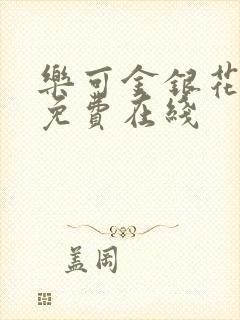 樂可金銀花
免費在綫
蓋岡